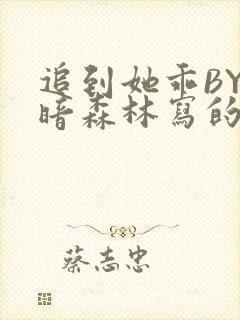 追到她乖BY
暗森林寫的
蔡志忠